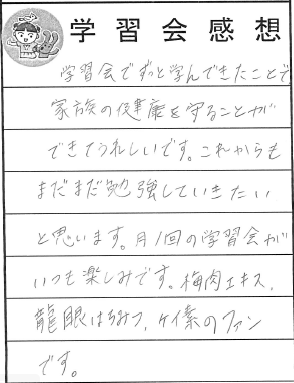 学習会感想
学習会でずっと学んできたことで
家族の健康を守ることが
できてうれしいです。これからも
まだまだ勉強していきたい
と思います。月1回の学習会が
いつも楽しみです。梅肉エキス、
龍眼はちみつ、ケイ素のファン
です。